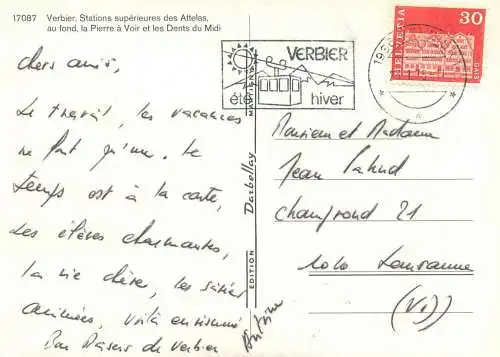 17087 Verbier. Stations supérieures des Attelas,
au fond, la Pierre à Voir et les Dents du Midi
chers amis,
Le travail, les vacances
ne font qu'un. Le
temps est à la carte,
les élèves charmantes,
la vie chère, les soirées
animées, voilà en résumé
Bon Baisers de Verbier
Antoine
EDITION Darbellay MARTIGNY
VERBIER
été hiver
HELVETIA
30
GAIS
1936
Monsieur et Madame
Jean
Chamfrond 21
1010 Lausanne
(VD)